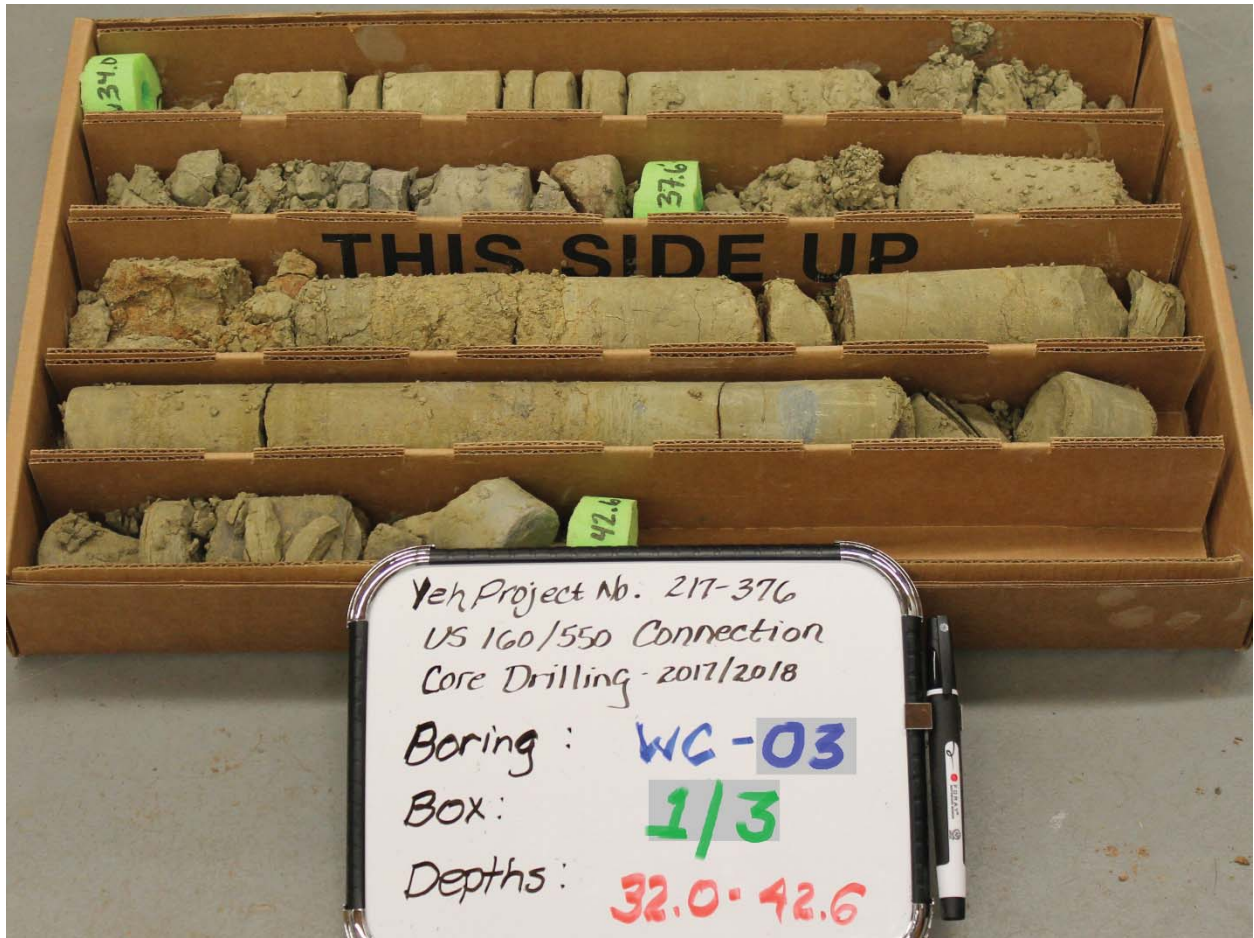 34.0
37.6
THIS SIDE UP
42.6
Yeh Project No. 217-376
US 160/550 Connection
Core Drilling - 2017/2018
Boring: WC-03
Box: 1/3
Depths: 32.0-42.6